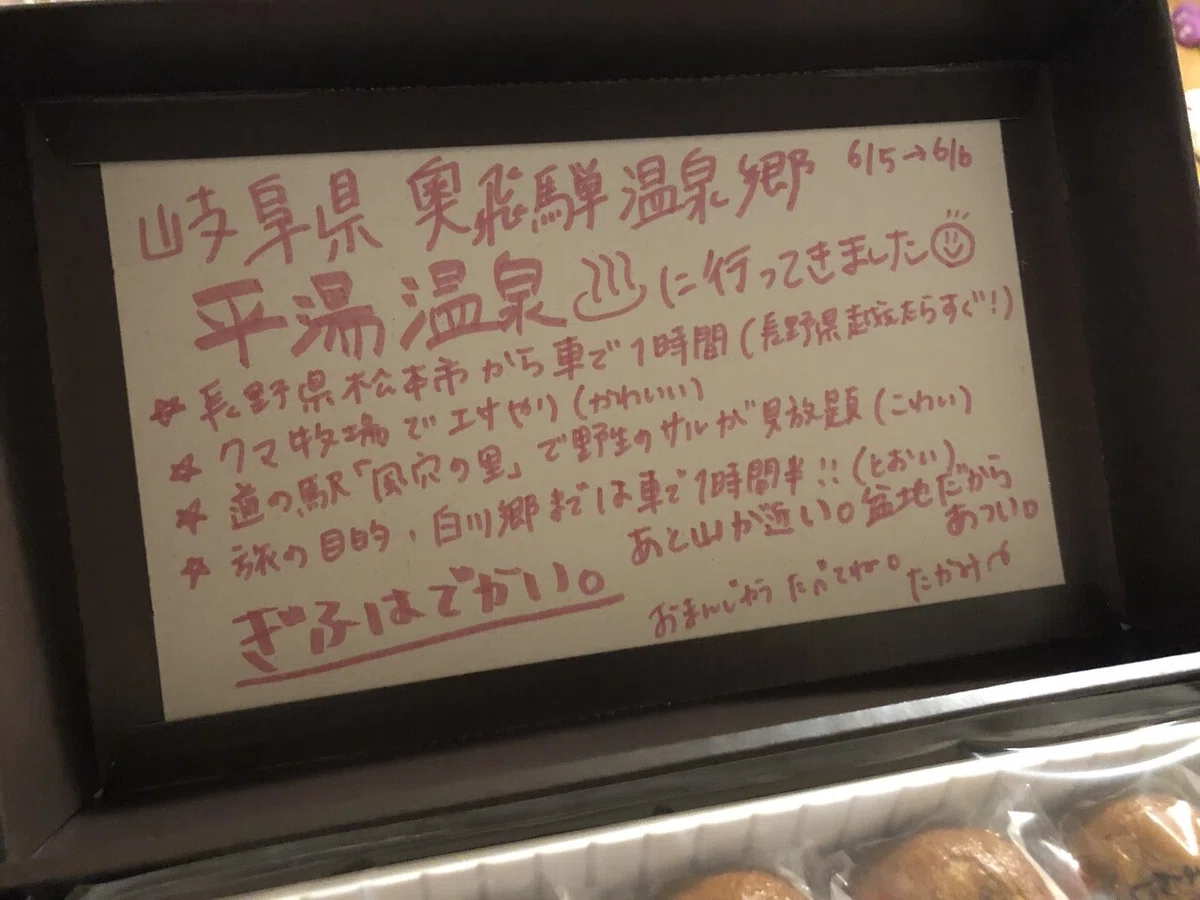 岐阜県 奥飛騨温泉郷 6/5→6/6
平湯温泉♨に行ってきました☺
☆ 長野県松本市から車で1時間(長野県越えたらすぐ!)
☆ クマ牧場でエサやり(かわいい)
☆ 道の駅「風穴の里」で野生のサルが見放題(こわい)
☆ 旅の目的・白川郷までは車で1時間半!!(とおい)
あと山が近い。盆地だから
あつい。
ぎふはでかい。
おまんじゅう たべてね。 たかみ〜